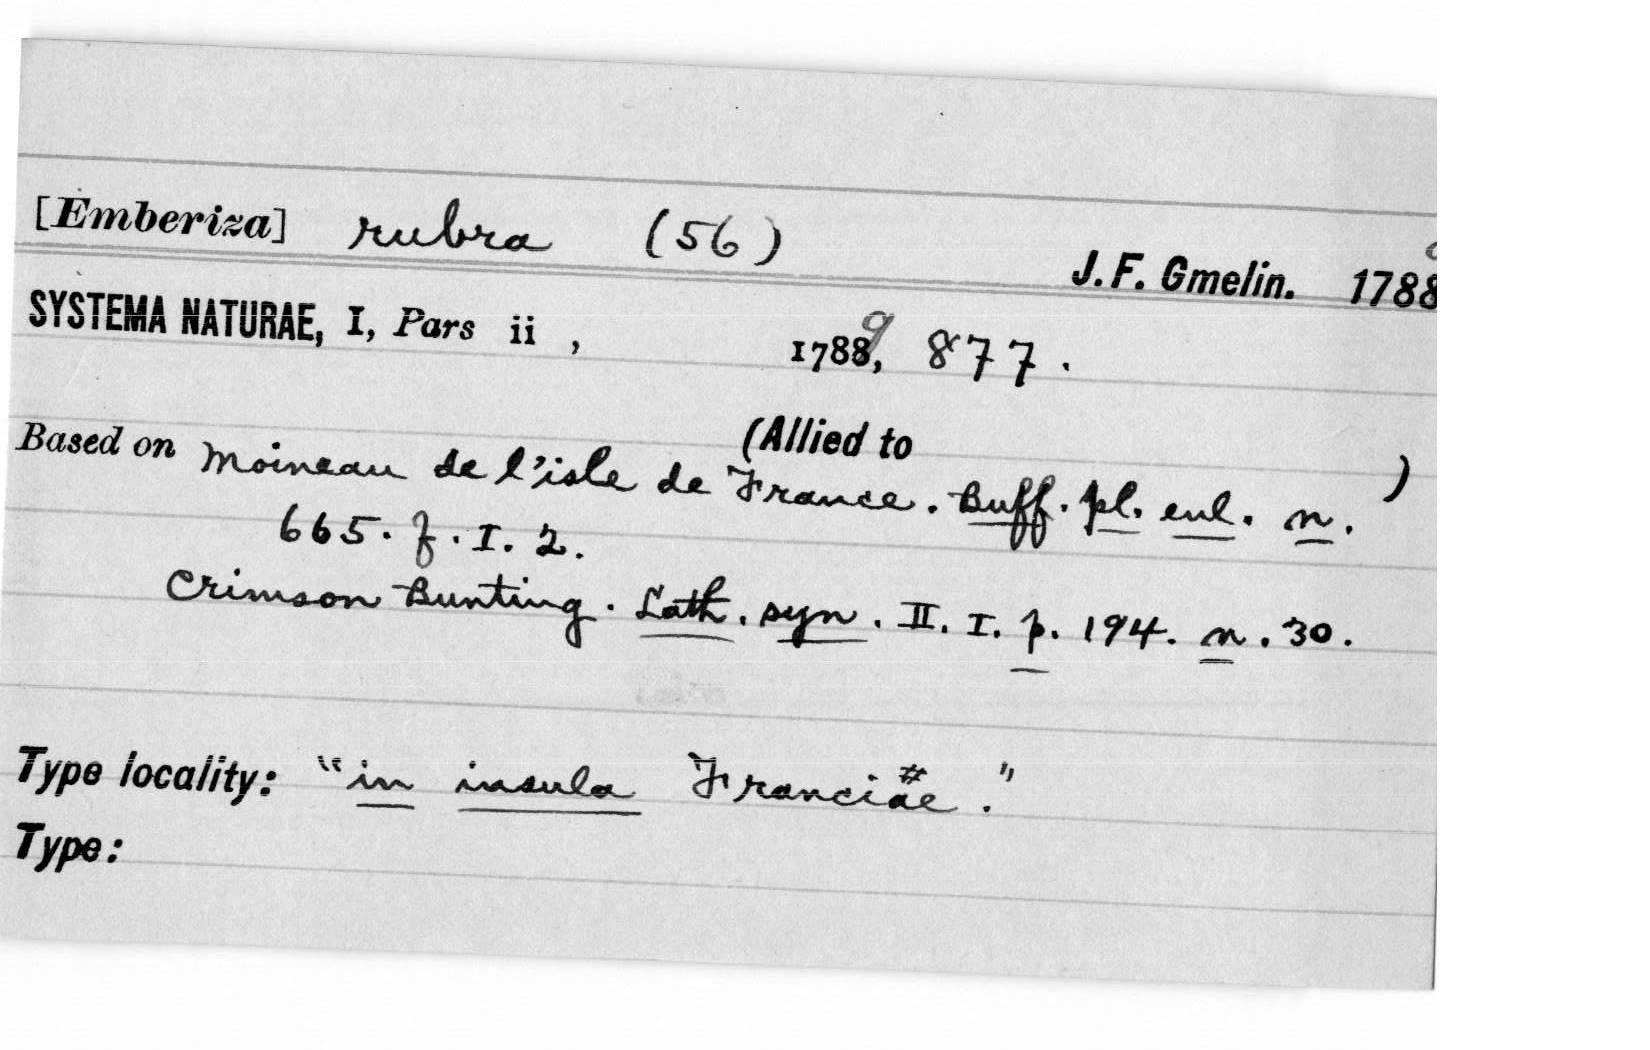 [Emberiza] rubra (56)
J. F. Gmelin. 1788
SYSTEMA NATURAE, I, Pars ii , 1788, 9 877.
(Allied to )
Based on Moineau de l'isle de France. Buff. pl. enl. n.
665. f. I. 2.
Crimson Bunting. Lath. syn. II. I. p. 194. n. 30.
Type locality: "in insula Franciae #."
Type: